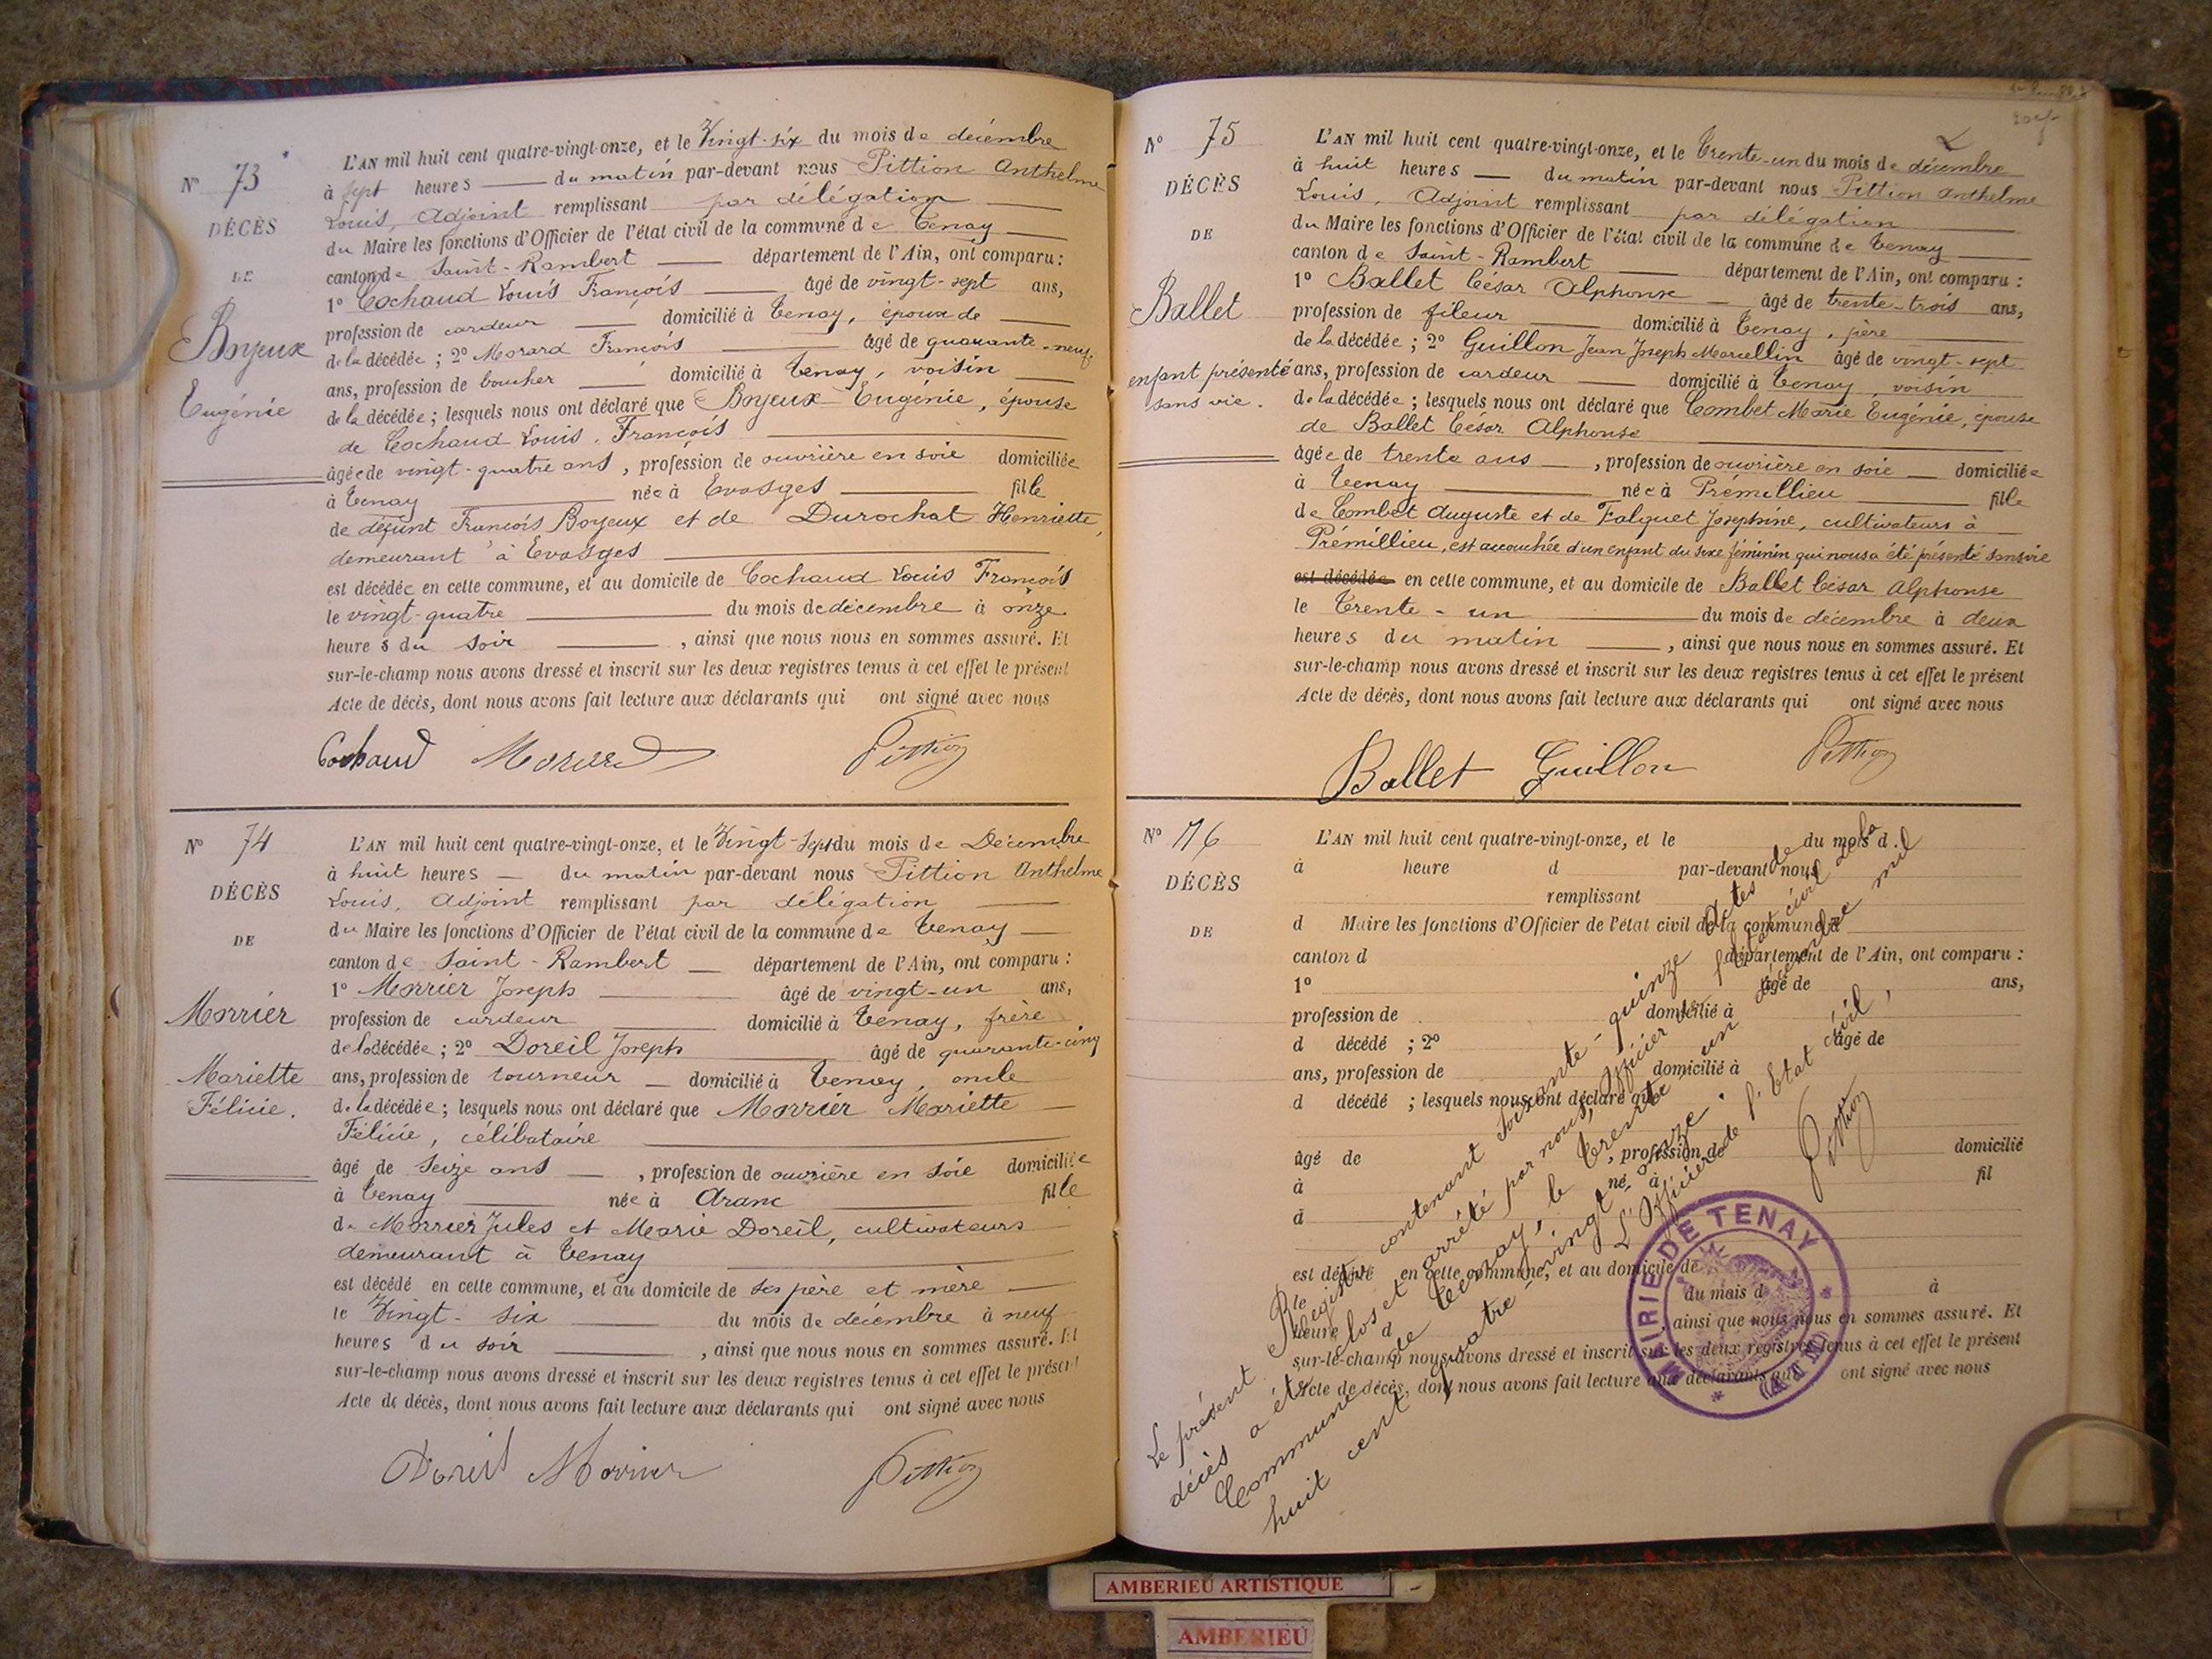 N° 73
DÉCÈS
DE
Boyeux
Eugénie
L'AN mil huit cent quatre-vingt-onze, et le Vingt-six du mois de décembre
à sept heures du matin par-devant nous Pittion Anthelme
Louis, Adjoint remplissant par délégation
du Maire les fonctions d'Officier de l'état civil de la commune de Tenay
canton de Saint-Rambert département de l'Ain, ont comparu :
1° Cochaud Louis François âgé de vingt-sept ans,
profession de cardeur domicilié à Tenay, époux de
de la décédée ; 2° Morard François âgé de quarante-neuf
ans, profession de boucher domicilié à Tenay, voisin
de la décédée ; lesquels nous ont déclaré que Boyeux Eugénie, épouse
de Cochaud Louis François
âgée de vingt-quatre ans, profession de ouvrière en soie domiciliée
à Tenay née à Evosges fille
de défunt François Boyeux et de Durochat Henriette,
demeurant à Evosges
est décédée en cette commune, et au domicile de Cochaud Louis François
le vingt-quatre du mois de décembre à onze
heures du soir, ainsi que nous nous en sommes assuré. Et
sur-le-champ nous avons dressé et inscrit sur les deux registres tenus à cet effet le présent
Acte de décès, dont nous avons fait lecture aux déclarants qui ont signé avec nous
Cochaud Morard Pittion
N° 74
DÉCÈS
DE
Morrier
Mariette
Félicie.
L'AN mil huit cent quatre-vingt-onze, et le Vingt-sept du mois de Décembre
à huit heures du matin par-devant nous Pittion Anthelme
Louis, Adjoint remplissant par délégation
du Maire les fonctions d'Officier de l'état civil de la commune de Tenay
canton de Saint-Rambert département de l'Ain, ont comparu :
1° Morrier Joseph âgé de vingt-un ans,
profession de cardeur domicilié à Tenay, frère
de la décédée ; 2° Doreil Joseph âgé de quarante-cinq
ans, profession de tourneur domicilié à Tenay, oncle
de la décédée ; lesquels nous ont déclaré que Morrier Mariette
Félicie, célibataire
âgé de seize ans, profession de ouvrière en soie domiciliée
à Tenay née à Aranc fille
de Morrier Jules et Marie Doreil, cultivateurs
demeurant à Tenay
est décédé en cette commune, et au domicile de ses père et mère
le Vingt-six du mois de décembre à neuf
heures du soir, ainsi que nous nous en sommes assuré. Et
sur-le-champ nous avons dressé et inscrit sur les deux registres tenus à cet effet le présent
Acte de décès, dont nous avons fait lecture aux déclarants qui ont signé avec nous
Doreil Morrier Pittion
N° 75
DÉCÈS
DE
Ballet
enfant présenté
sans vie.
L'AN mil huit cent quatre-vingt-onze, et le Trente-un du mois de décembre
à huit heures du matin par-devant nous Pittion Anthelme
Louis, Adjoint remplissant par délégation
du Maire les fonctions d'Officier de l'état civil de la commune de Tenay
canton de Saint-Rambert département de l'Ain, ont comparu :
1° Ballet César Alphonse âgé de trente-trois ans,
profession de fileur domicilié à Tenay, père
de la décédée ; 2° Guillon Jean Joseph Marcellin âgé de vingt-sept
ans, profession de cardeur domicilié à Tenay, voisin
de la décédée ; lesquels nous ont déclaré que Combet Marie Eugénie, épouse
de Ballet César Alphonse
âgée de trente ans, profession de ouvrière en soie domiciliée
à Tenay née à Prémillieu fille
de Combet Auguste et de Falquet Joséphine, cultivateurs à
Prémillieu, est accouchée d'un enfant du sexe féminin qui nous a été présenté sans vie
est décédée en cette commune, et au domicile de Ballet César Alphonse
le Trente-un du mois de décembre à deux
heures du matin, ainsi que nous nous en sommes assuré. Et
sur-le-champ nous avons dressé et inscrit sur les deux registres tenus à cet effet le présent
Acte de décès, dont nous avons fait lecture aux déclarants qui ont signé avec nous
Ballet Guillon Pittion
N° 76
DÉCÈS
DE
L'AN mil huit cent quatre-vingt-onze, et le du mois d
à heure d par-devant nous
remplissant
d Maire les fonctions d'Officier de l'état civil de la commune d
canton d département de l'Ain, ont comparu :
1° âgé de ans,
profession de domicilié à
d décédé ; 2° âgé de
ans, profession de domicilié à
d décédé ; lesquels nous ont déclaré que
âgé de , profession de domicilié
à né à fil
d
est décédé en cette commune, et au domicile de
le du mois d à
heure d , ainsi que nous nous en sommes assuré. Et
sur-le-champ nous avons dressé et inscrit sur les deux registres tenus à cet effet le présent
Acte de décès, dont nous avons fait lecture aux déclarants qui ont signé avec nous
Le présent Registre contenant soixante-quinze Actes de
décès a été clos et arrêté par nous, Officier de l'état civil de la
Commune de Tenay, le trente un décembre mil
huit cent quatre-vingt onze.
L'Officier de l'Etat civil,
Pittion
MAIRIE DE TENAY
(AIN)
AMBERIEU ARTISTIQUE
AMBERIEU